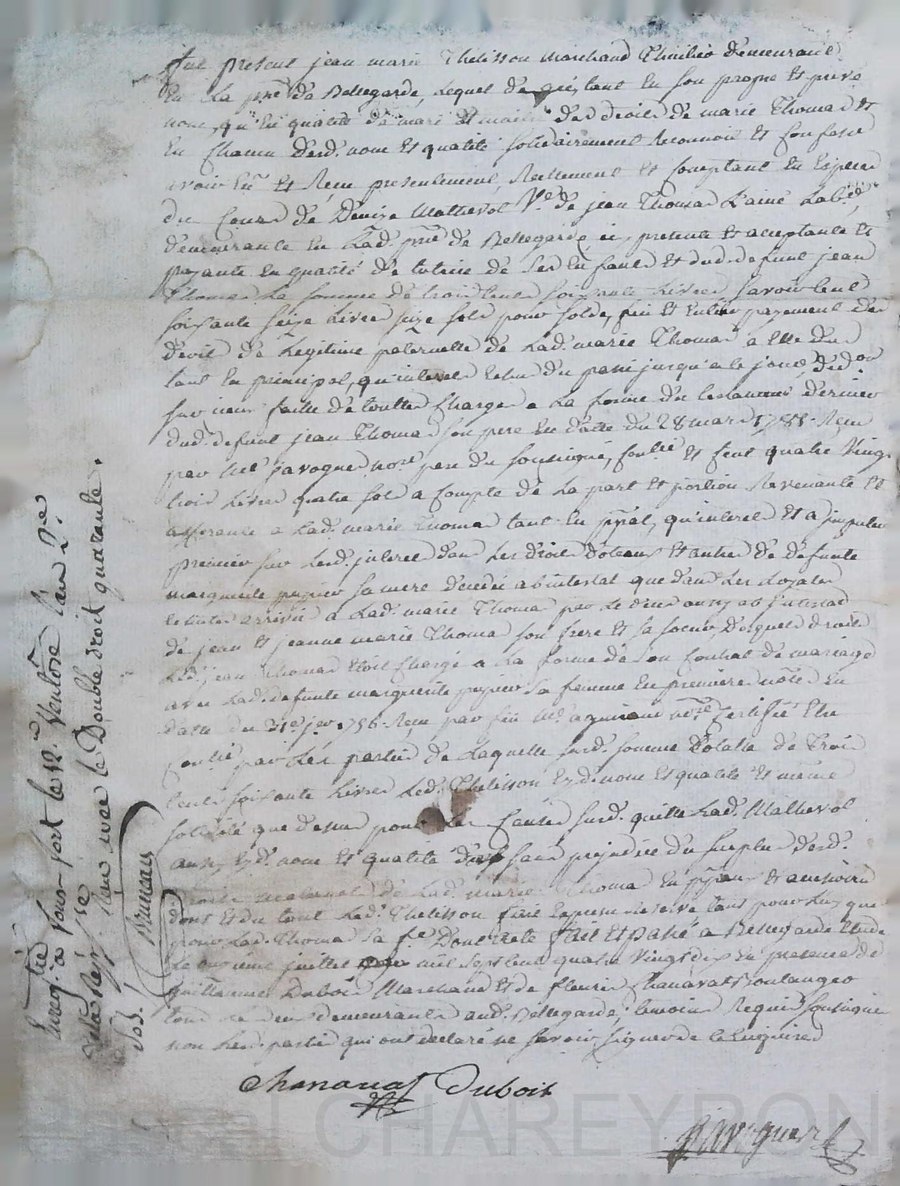 fut present jean marie Thelisson Marchand demeurant
En La prse de Bellegarde, Lequel de gré, tant En Son propre Et privé
nom, qu'En qualité de mari Et maitre des droits de marie Thomas Et
En Chacun desd. nom Et qualité Solidairement Reconnoit Et Confesse
avoir Eu Et Recu presentement, Reellement Et Comptant En Especes
du Cours de Denize Mathevol Ve. de jean Thomas L'ainé Labr,
demeurante En Lad. prse de Bellegarde, ici presente Et acceptante Et
payante En qualité de tutrice de Ses Enfants Et dud. defunt jean
Thomas La Somme de trois Cents Soixante Livres Savoir Cent
Soixante Seize Livres Seize Sols pour Solde, fin Et Entier payement des
droits de Legitime paternelle de Lad. marie Thomas a Elle dus
tant En principal, qu'interets Echus du passé jusqu'a ce jour,
Sur iceux faitte de touttes Charges a La forme du testament dernier
dud. defunt jean Thomas Son pere En datte du 28 mars Recu
par Me Ravoguer nore Soussigné, Et Cent quatre Vingt
trois Livres quatre Sols a Compte de La part Et portion Revenante Et
afferante a Lad. marie Thomas tant En ppal, qu'interets Et a imputer
premier Sur Lesd. interets dans Les droits Et autres de defunte
marguerite Sa mere decedée abintestat que dans Les
arrivés a Lad. marie Thomas par Le deces aussy ab intestat
de jean Et jeanne marie Thomas Son frere Et Sa Soeur Desquels droits
Led. jean Thomas Etoit Chargé a La forme de Son Contrat de mariage
avec Lad. defunte marguerite Sa femme En premiere nôces En
datte du 31e. jer. 1756 Recu par feu Me nore Certifié Etre
par Les parties de Laquelle Susd. Somme totalle de Trois
Cents Soixante Livres Led. Thelisson Esd. nom Et qualité Et même
Solidité que dessus pour Les Causes Susd. quitte Lad. Mathevol
aussy Esd. nom Et qualité Sans prejudice du Surplus desd.
droits maternels de Lad. marie Thomas En ppaux Et accessoires
dont Et du tout Led. Thelisson fait Expresse reserve tant pour Luy que
pour Lad. Thomas Sa fe. Dont acte fait Et passé a Bellegarde Etude
Le onzieme juillet mil Sept Cent quatre Vingt dix En presence de
Guillaume Dubois Marchand Et de fleurie Chanavat Boulanger
tous Les deux demeurants aud. Bellegarde, temoins Requis Soussignés
non Lesd. parties qui ont declaré ne Savoir Signer de Ce Enquises
Chanavat Dubois
Ravoguer
Enregtré a Sous fort le 12. Ventose L'an 2e.
Recu avec le Double droit quarante
Sols. Bruneaux
Pascal CHAREYRON